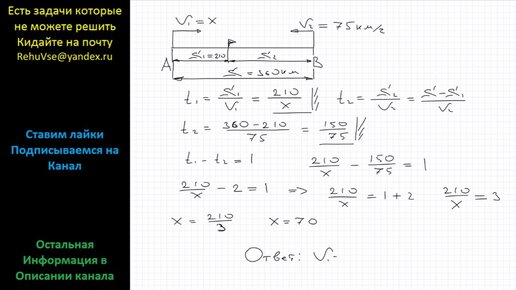 Есть задачи которые
не можете решить
Кидайте на почту
RehuVse@yandex.ru
Ставим лайки
Подписываемся на
Канал
Остальная
Информация в
Описании канала
V₁ = x
V₂ = 75 км/ч
S₁ = 210
S₂
A
B
S = 360 км
t₁ = S₁/V₁ = 210/x
t₂ = S₂/V₂ = S - S₁/V₂
t₂ = 360 - 210/75 = 150/75
t₁ - t₂ = 1
210/x - 150/75 = 1
210/x - 2 = 1 => 210/x = 1 + 2
210/x = 3
x = 210/3
x = 70
Ответ: V₁ -